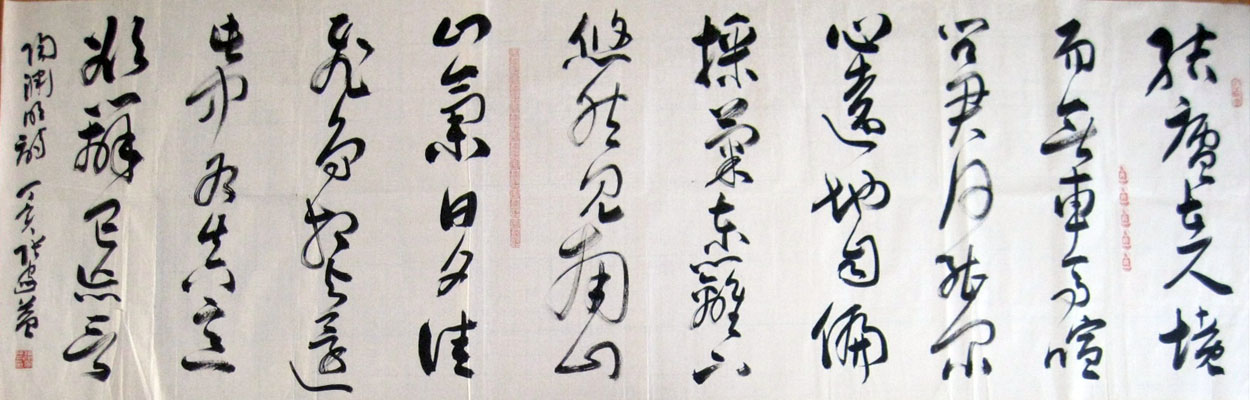 結廬在人境
而無車馬喧
問君何能尔
心遠地自偏
採菊東籬下
悠然見南山
山氣日夕佳
飛鳥相與還
此中有真意
欲辨已忘言
陶渊明詩 丁亥